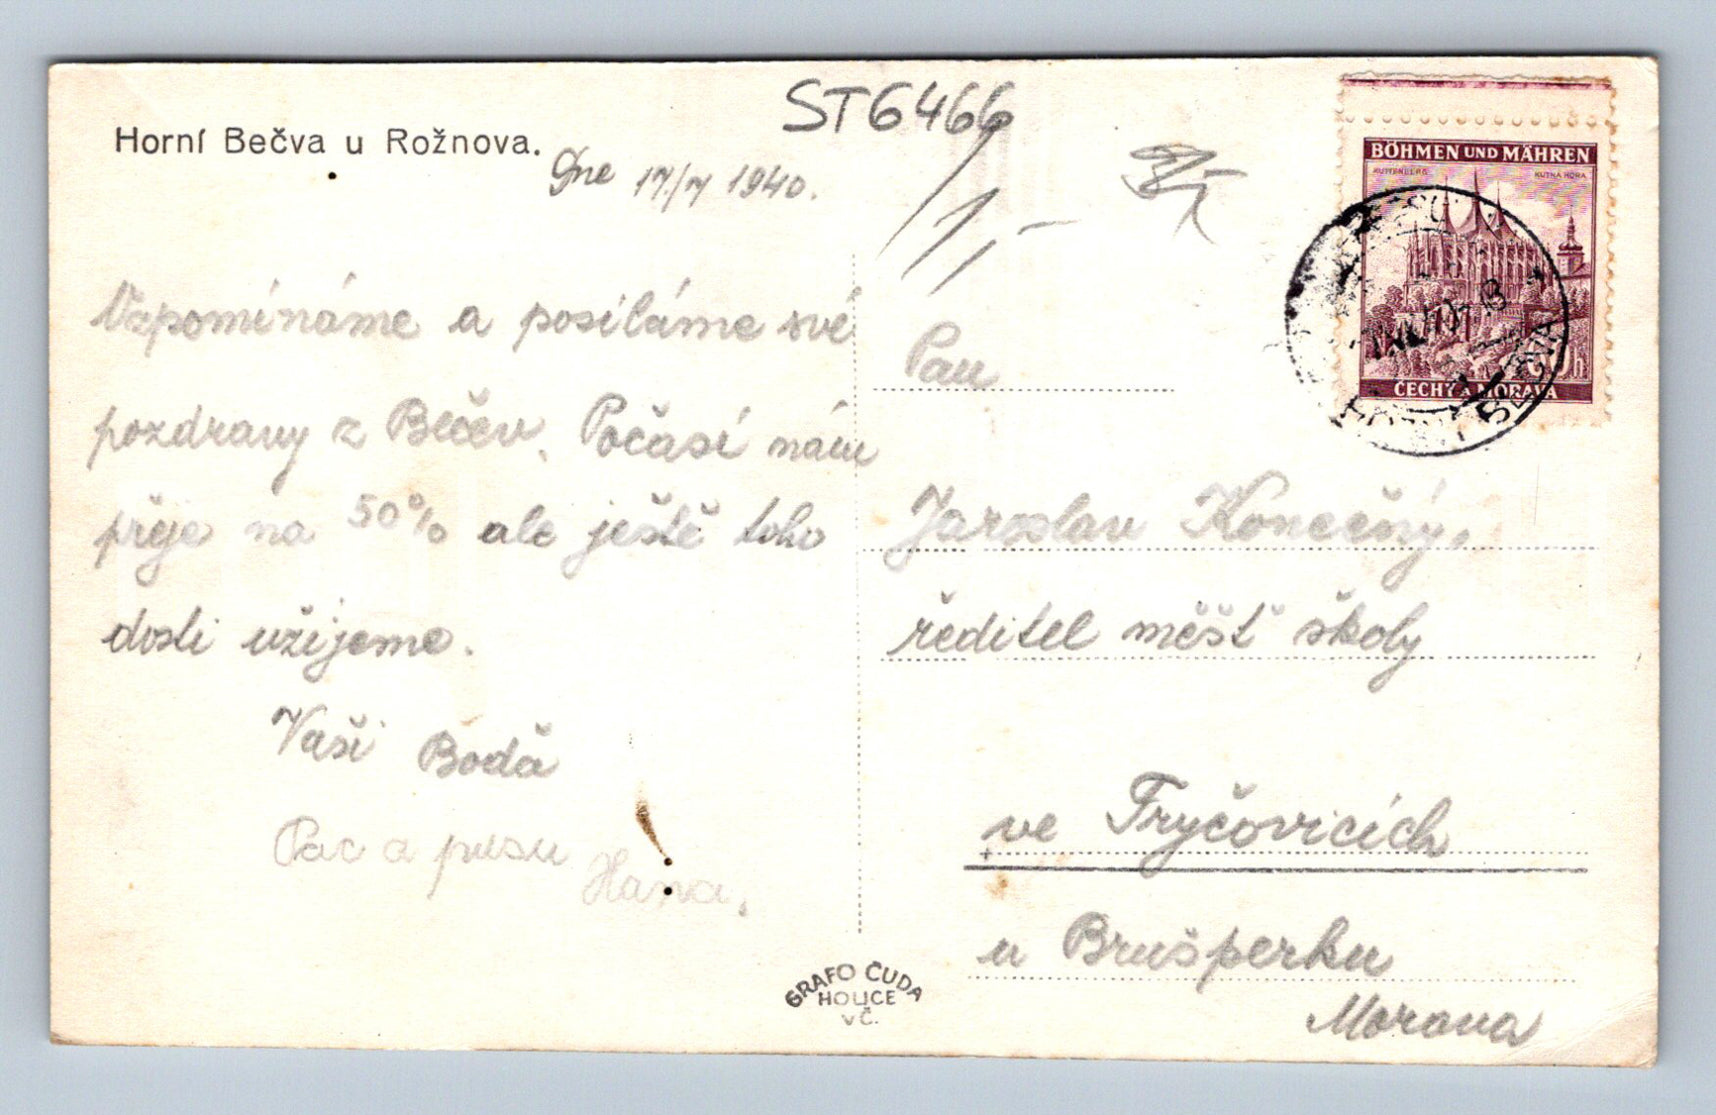 Horní Bečva u Rožnova.
Dne 17./7 1940.
ST6466
1,-
Vzpomínáme a posíláme své
pozdravy z Bečev. Počasí nám
přeje na 50% ale ještě toho
dosti užijeme.
Vaši Boďa
Hana.
GRAFO ČUDA
HOLICE
v Č.
BÖHMEN UND MÄHREN
KUTTENBERG KUTNÁ HORA
ČECHY A MORAVA
Pan
Jaroslav Konečný,
ředitel měšť školy
ve Fryčovicích
u Brušperku
Morava